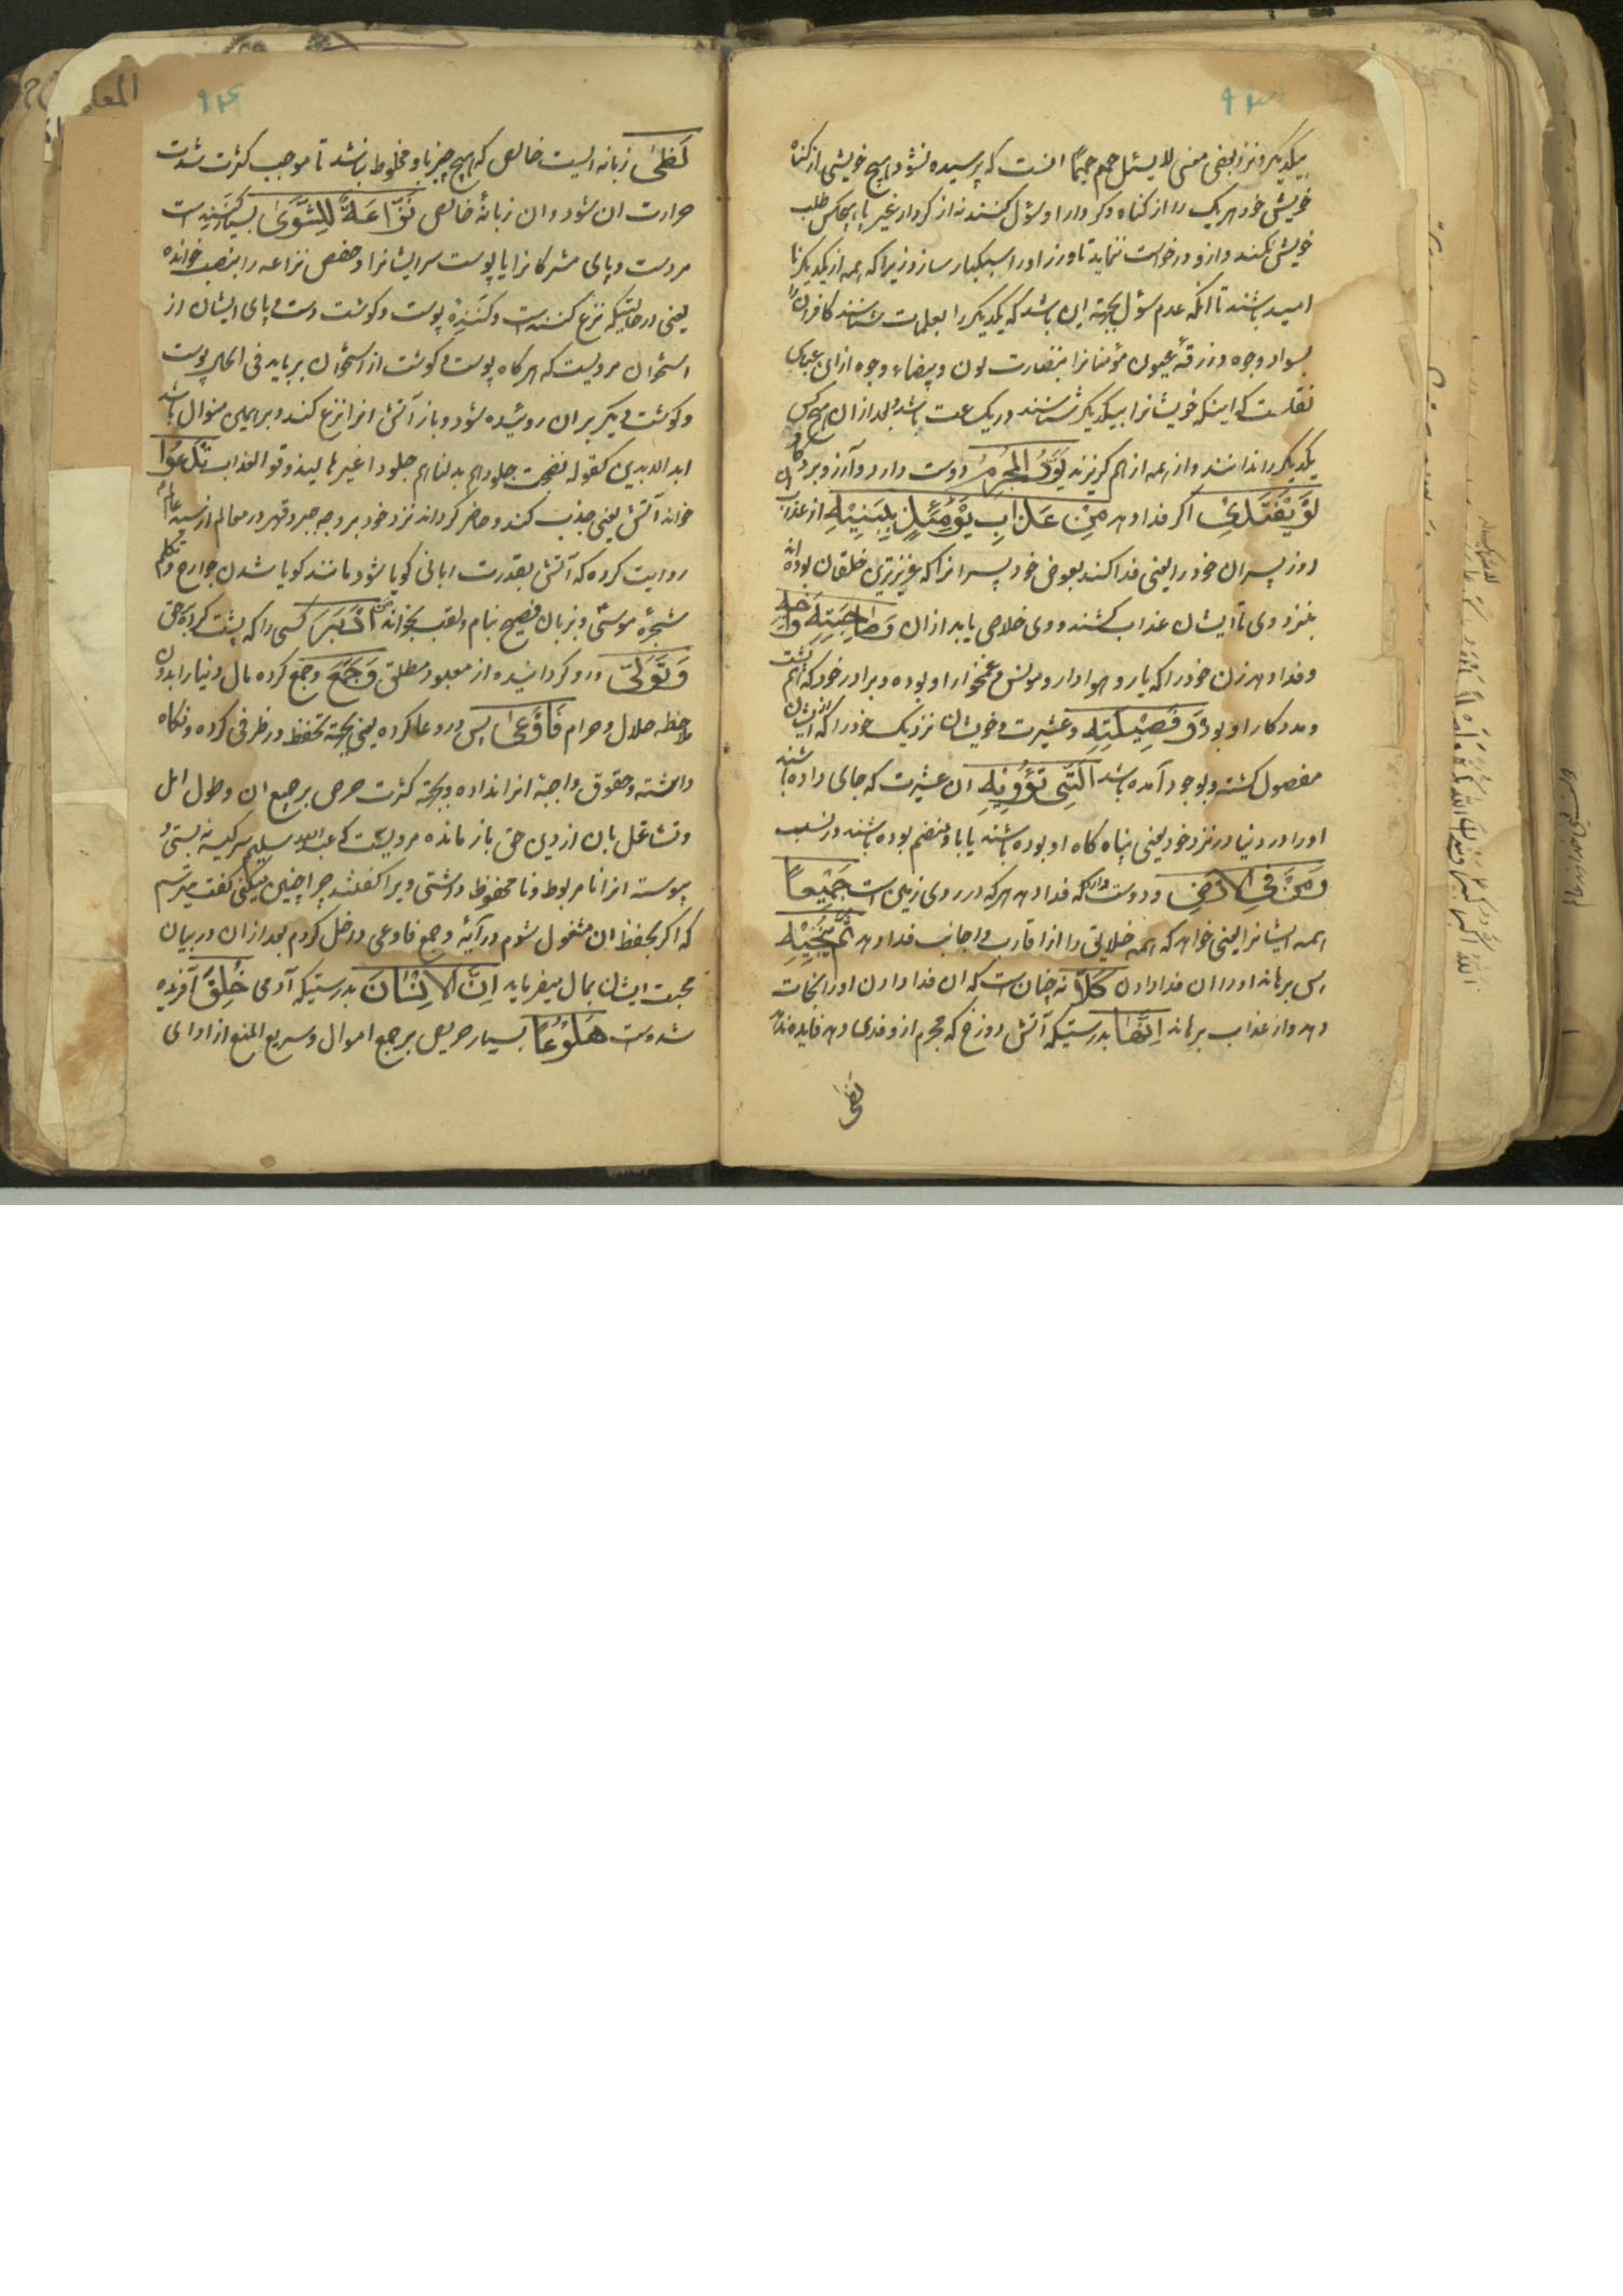 بیکدیکر و نزد بعضی معنی لا یسئل حمیم حمیماً انست که پرسیده نشود هیچ خویشی از کناه
خویش خود هریک را از کناه و کردار او سؤل کنند نه از کردار غیر یا هیچکس طلب
خویش نکند و ازو درخواست ننماید تا وزر او را سبکبار سازد زیرا که همه از یکدیکر نا
امید باشند تا انکه عدم سؤل بجهة این باشد که یکدیکر را بعلامات شناسند کافرانرا
بسواد وجوه و زرقهٔ عیون و مؤمنانرا بنضارت لون و بیضاء وجوه از ابن عباس
نقلست که اینکه خویشانرا بیکدیکر شناسند در یک ساعت باشد و بعد از ان هیچ کس
یکدیکر را ندانند و از همه از هم کریزند یَوَدُّ الْمُجْرِمُ دوست دارد و آرزو برد کافر
لَوْ یَفْتَدِیْ اکر فدا دهد مِنْ عَذَابِ یَوْمَئِذٍ بِبَنِیْهِ از عذاب ان
روز پسران خود را یعنی فدا کند بعوض خود پسرانرا که عزیزترین خلقان بوده اند
بنزد وی تا ایشان عذاب کشند و وی خلاصی یابد از ان وَصَاحِبَتِهِ وَاَخِیْهِ
و فدا دهد زن خود را که یار و هوادار و مونس و غمخوار او بوده و برادر خود که هم پشت
و مددکار او بود وَفَصِیْلَتِهِ و عشیرت و خویشان نزدیک خود را که از ایشان
مفصول کشته و بوجود آمده باشد الَّتِی تُؤْوِیْهِ ان عشیرت که جای داده باشند
او را در دنیا در نزد خود یعنی پناه کاه او بوده باشند یا با او منضم بوده باشند در نسب
وَمَنْ فِی الْاَرْضِ و دوست دارد که فدا دهد هر که در روی زمین است جَمِیْعاً
همه ایشانرا یعنی خواهد که همه خلایق را از اقارب و اجانب فدا دهد ثُمَّ یُنْجِیْهِ
پس برهاند او را ان فدا دادن کَلَّا نه چنان است که ان فدا دادن او را نجات
دهد و از عذاب برهاند اِنَّهَا بدرستیکه آتش دوزخ که مجرم ازو فدی دهد فایده ندهد
لظی
لَظٰی زبانه ایست خالص که هیچ چیز با و مخلوط نباشد تا موجب کثرت شدت
حرارت ان شود و ان زبانهٔ خالص نَزَّاعَةً لِلشَّوٰی بسیار کشنده است
مر دست و پای مشرکانرا یا پوست سر ایشانرا و حفص نزاعه را بنصب خوانده
یعنی در حالتیکه نزع کننده است و کنندهٔ پوست و کوشت دست و پای ایشان از
استخوان مرویست که هر کاه پوست و کوشت از استخوان بر باید فی الحال پوست
و کوشت دیکر بران روئیده شود و باز آتش انرا نزع کند و بر همین منوال باشد
ابد الابدین کقوله نضجت جلودهم بدلناهم جلودا غیرها لیذوقوا العذاب تَدْعُوْا
خواند آتش یعنی جذب کند و حاضر کرداند نزد خود بر وجه جبر و قهر در معالم از
روایت کرده که آتش بقدرت ربانی کویا شود مانند کویا شدن جوارح و تکلم
شجرهٔ موسی و بزبان فصیح بنام و لقب بخواند مَنْ اَدْبَرَ کسی را که پشت کرده بر حق
وَ تَوَلّٰی و رو کردانیده از معبود مطلق وَ جَمَعَ و جمع کرده مال دنیا را بدون
ملاحظه حلال و حرام فَاَوْعٰی پس در وعا کرده یعنی بجهة تحفظ در ظرفی کرده و نکاه
داشته و حقوق واجبهٔ انرا نداده و بجهة کثرت حرص بر جمع ان و طول امل
و تشاغل بان از دین حق باز مانده مرویست که عبدالله سلیم سر کیسه نبستی و
پیوسته انرا نا مربوط و نا محفوظ داشتی ویرا کفتند چرا چنین میکنی کفت میترسم
که اکر بحفظ ان مشغول شوم در آیهٔ و جمع فاوعی داخل کردم بعد از ان در بیان
محبت ایشان بمال میفرماید اِنَّ الْاِنْسَانَ بدرستیکه آدمی خُلِقَ آفریده
شده است هَلُوْعًا بسیار حریص بر جمع اموال و سریع المنع از ادای